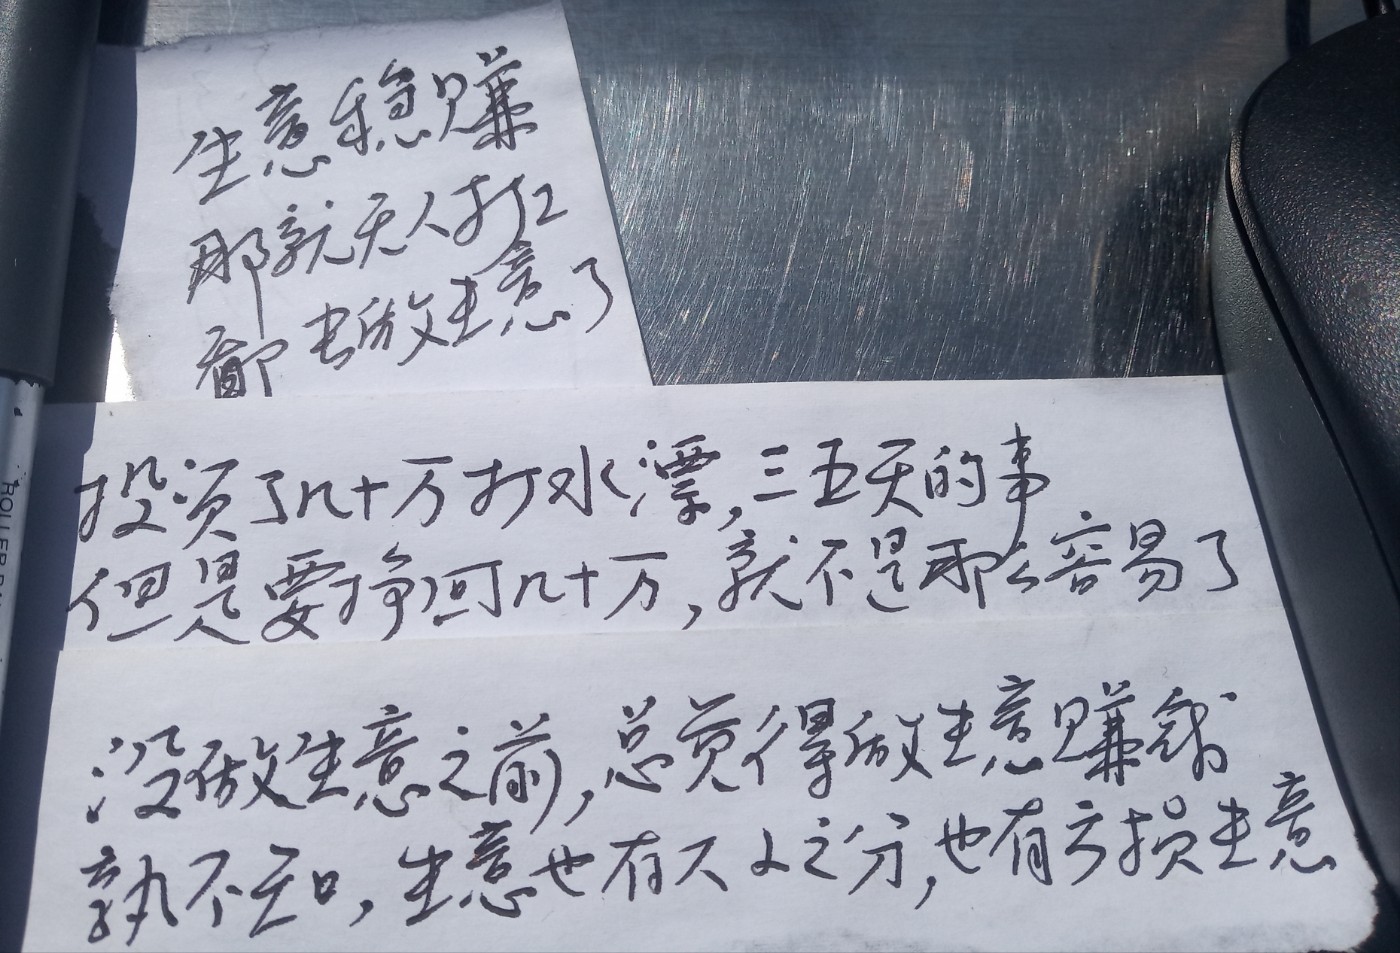 生意稳赚
那就无人打工
都去做生意了
投资了几十万打水漂,三五天的事
但是要挣回几十万,就不是那么容易了
没做生意之前,总觉得做生意赚钱
孰不知,生意也有大小之分,也有亏损生意
ROLLER